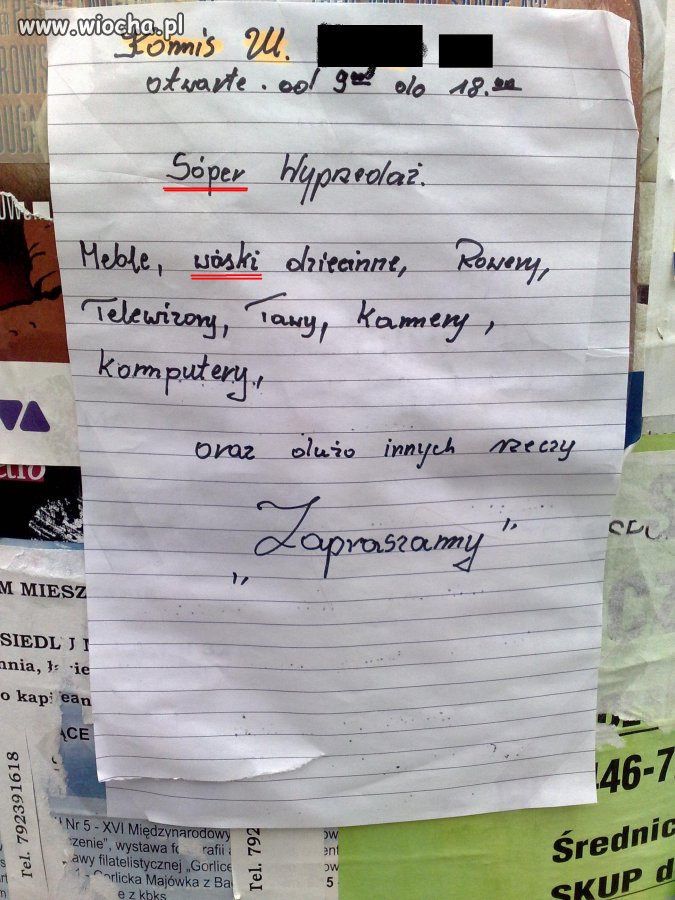 www.wiocha.pl
Komis Ul.
otwarte. od 9 do 18.00
Sóper Wyprzedaż.
Meble, wóski dziecinne, Rowery,
Telewizory, Ławy, Kamery,
Komputery,
oraz dużo innych rzeczy
„Zapraszamy"
M MIESZ
SIEDL
o kap
ĄCE
Tel. 792391618
Nr 5 - XVI Międzynarodowy
zenie", wystawa fo grafii
awy filatelistycznej „Gorlice
Gorlicka Majówka z
e z kbks
Tel. 792
446-7
Średnic
SKUP d